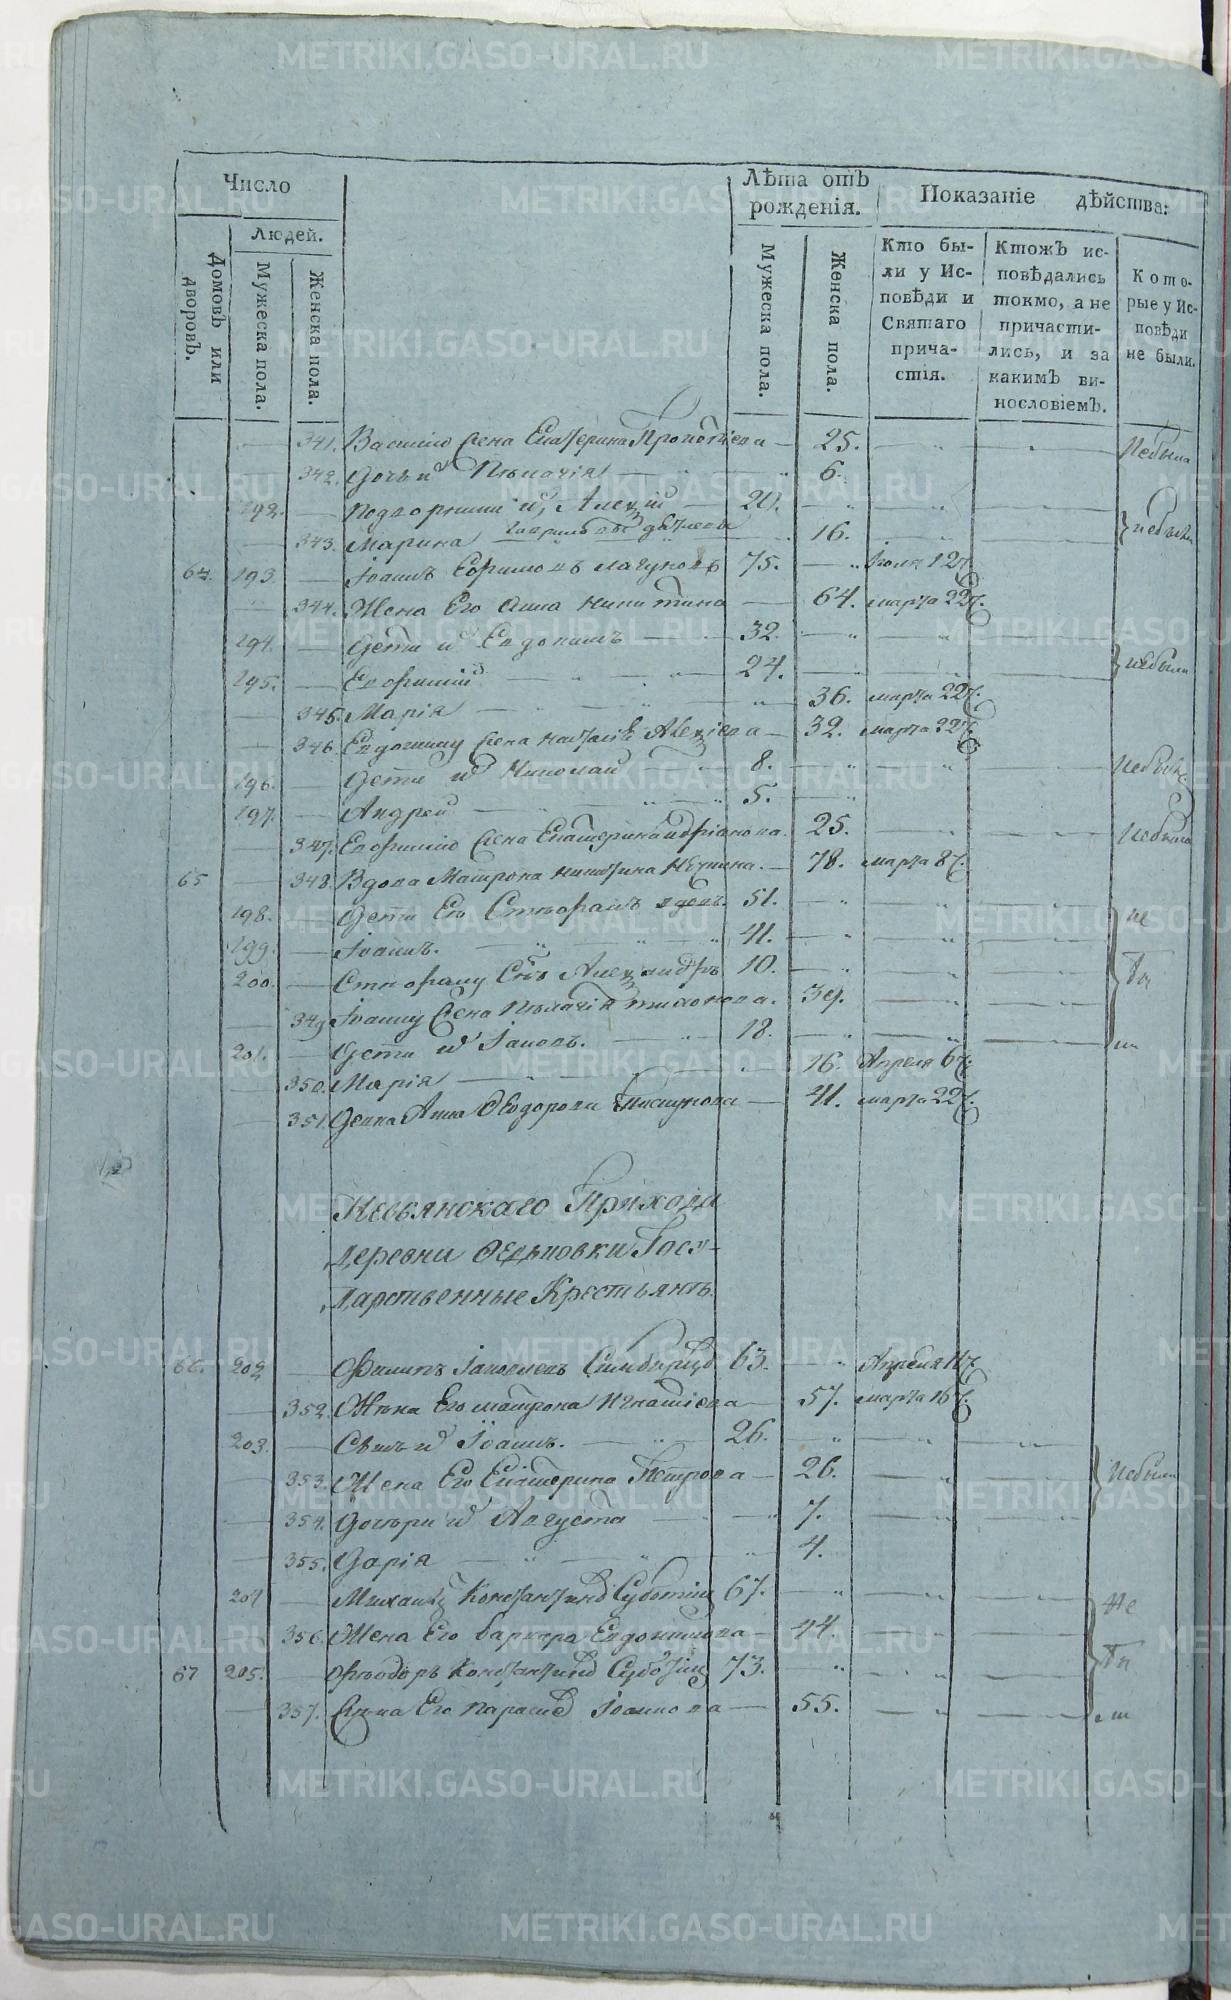 Число
Лѣта отъ рожденія.
Показаніе дѣйства:
Людей.
Домовъ или дворовъ.
Мужеска пола.
Женска пола.
Мужеска пола.
Женска пола.
Кто бы-
ли у Ис-
повѣди и
Святаго
прича-
стія.
Ктожъ ис-
повѣдались
токмо, а не
причасти-
лись, и за
какимъ ви-
нословіемъ.
Кото-
рые у Ис-
повѣди
не были.
341. Жена Екатерина 25. не была
342. Дочь и Пелагія 6.
192. Алексій 20.
343. Марина 16. не были
64. 193. Іоаннъ Ефимовъ Лагуновъ 75. 12
344. Жена Его Анна Никитина 64. марта 22
194. Дети и Евдокимъ 32.
195. Евфимій 24. не были
345. Марія 36. марта 22
346. Евдокиму жена Наталія Алексіева 32. марта 22
196. Дети и Николай 8.
197. Андрей 5.
347. Евфимію жена Екатерина Андріанова. 25. не была
65 348. Вдова Матрона Никитина 78. марта 8
198. Дети Его Стефанъ вдовъ. 51. не
199. Іоаннъ. 41.
200. Стефану Сынъ Александръ 10. бы
349. Іоанну жена Пелагія Тихонова. 39.
201. Дети и Іаковъ. 18. ли
350. Марія 16. Апреля 6
351. Девка Анна Феодорова 41. марта 22
Невьянскаго Прихода
Деревни Федьковки Госу-
дарственные Крестьянъ.
66. 202 Филипъ Іаковлевъ 63. Апреля
352. Жена Его Матрона Игнатіева 57. марта 16
203. Сынъ и Іоаннъ. 26.
353. Жена Его Екатерина Петрова 26. не были
354. Дочери и Августа 7.
355. Дарія 4.
204 Михаилъ Константиновъ Суботинъ 67. не
356. Жена Его Варвара Евдокимова 44.
67 205. Феодоръ Константиновъ Суботинъ 73. бы
357. Жена Его Параскева Іоаннова 55. ли
METRIKI.GASO-URAL.RU